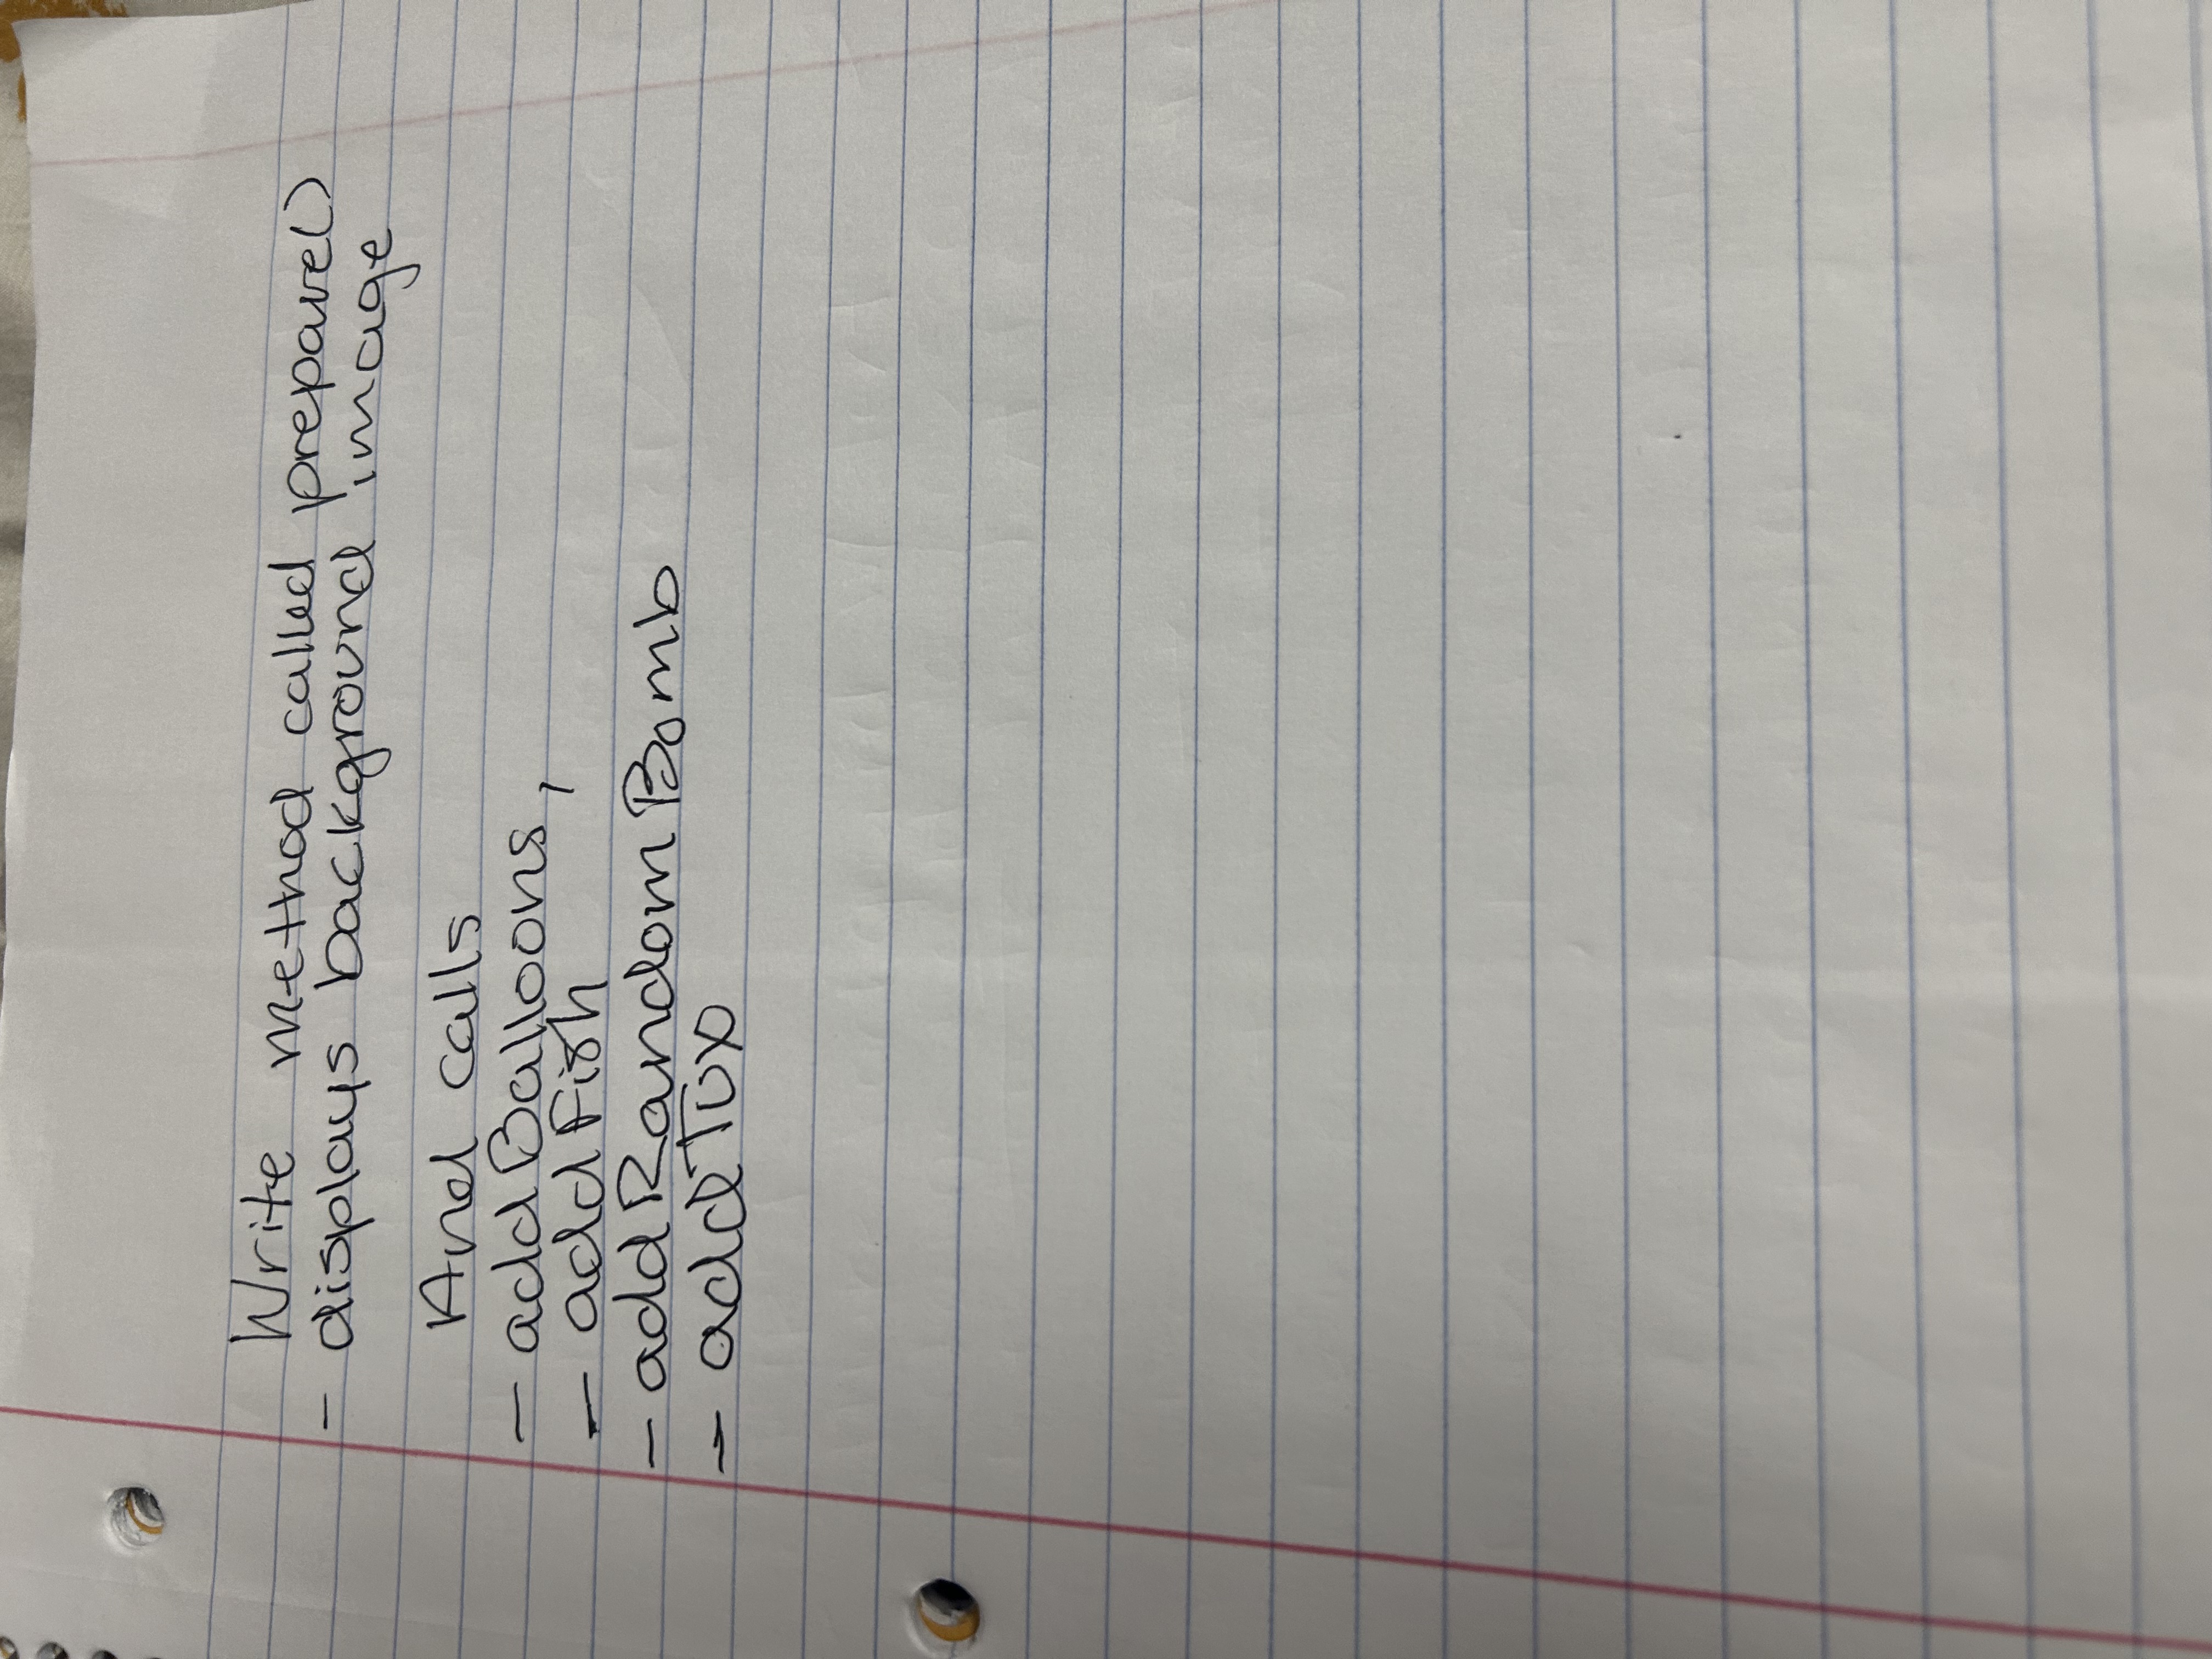 Write method called prepare()
- displays background image
And calls
- addBalloons,
- addFish
- addRandomBomb
- addTux